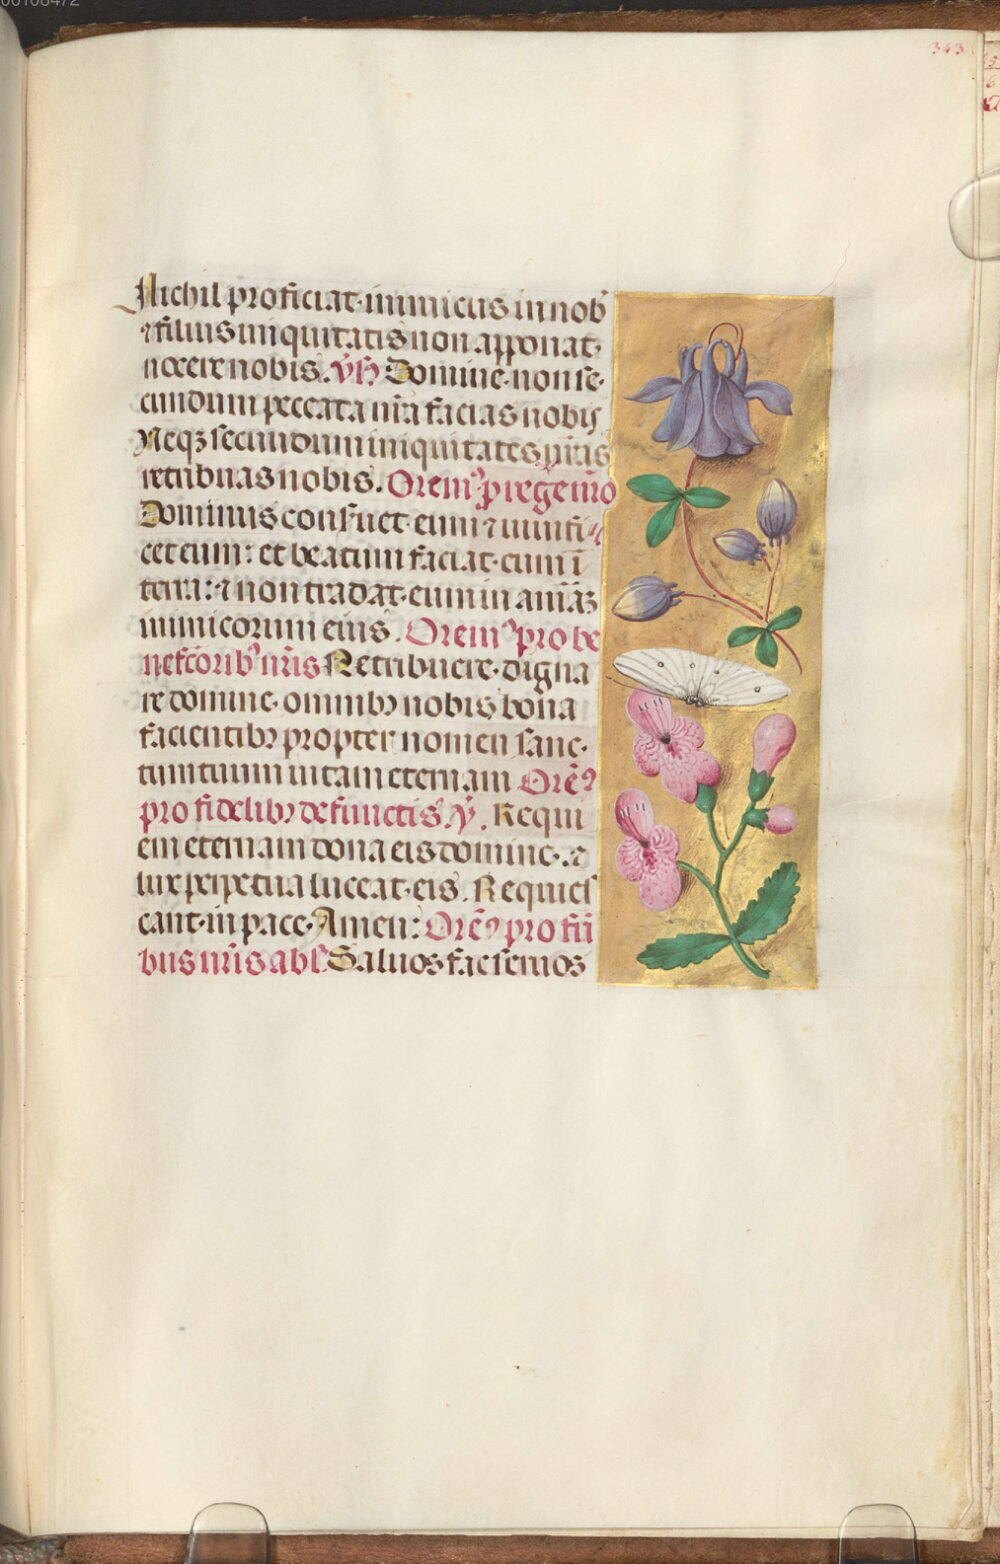 00108472
343
Nichil proficiat inimicus in nobˀ
⁊ filius iniquitatis non apponat
nocere nobis. V̄ß Domine non se
cundum peccata nr̄a facias nobis
Neqꝫ secundum iniquitates nr̄as
retribuas nobis. Oremˀ p̱ rege nr̄o
Dominus conseruet eum ⁊ uiuifi
cet eum: et beatum faciat eum ī
terra: ⁊ non tradat eum in aīaꝫ
inimicorum eius. Oremˀ pro be
nefc̄oribˀ nr̄is Retribuere digna
re domine omnibꝫ nobis bona
facientibꝫ propter nomen sanc
tum tuum uitam eternam Orēˀ
pro fidelibꝫ defunctis. V̄. Requi
em eternam dona eis domine. ⁊
lux perpetua luceat eis. Requies
cant in pace Amen: Orēˀ pro frī
bus nr̄is abs̄. Saluos fac seruos